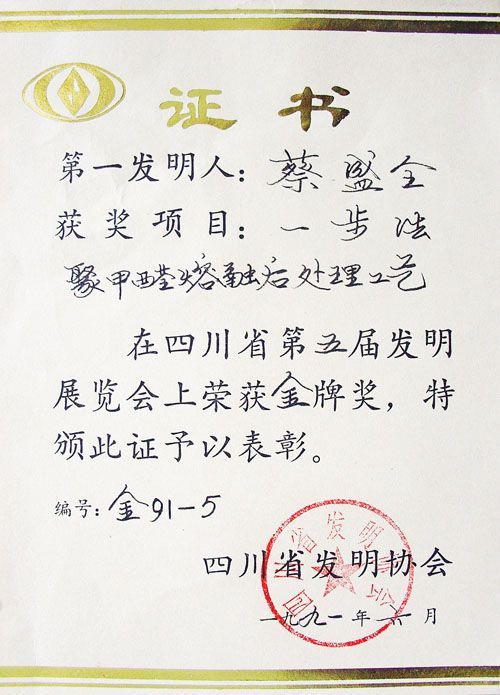 证书
第一发明人：蔡盛全
获奖项目：一步法
聚甲醛熔融后处理工艺
在四川省第五届发明
展览会上荣获金牌奖，特
颁此证予以表彰。
编号：金91-5
四川省发明协会
四川省发明协会
一九九一年 月